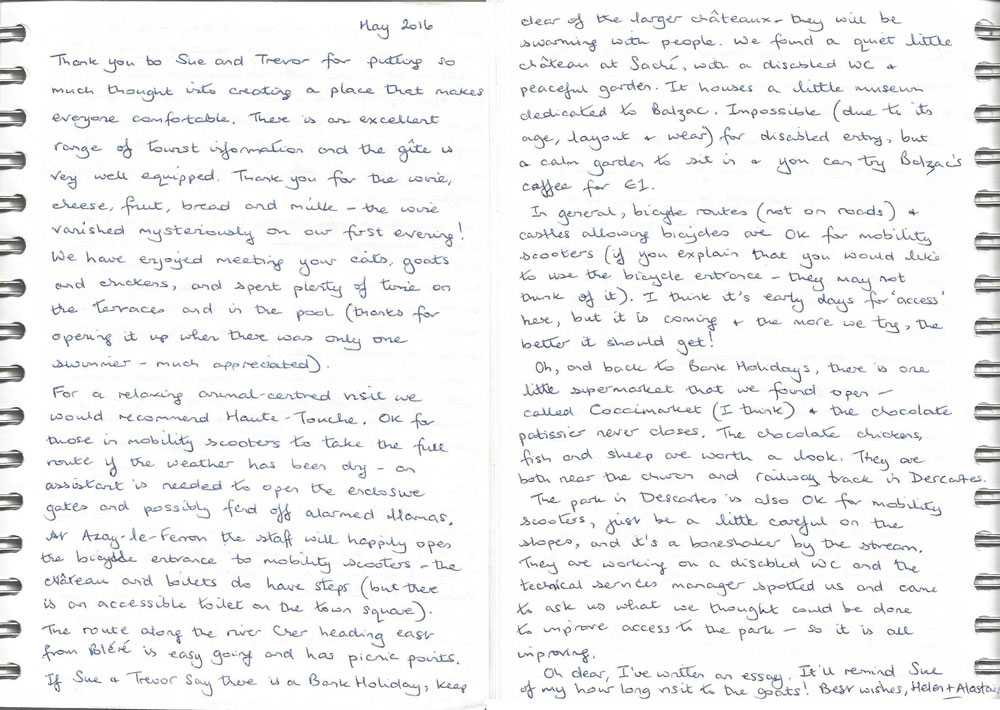 May 2016
Thank you to Sue and Trevor for putting so
much thought into creating a place that makes
everyone comfortable. There is an excellent
range of tourist information and the gîte is
very well equipped. Thank you for the wine,
cheese, fruit, bread and milk - the wine
vanished mysteriously on our first evening!
We have enjoyed meeting your cats, goats
and chickens, and spent plenty of time on
the terraces and in the pool (thanks for
opening it up when there was only one
swimmer - much appreciated).
For a relaxing animal-centred visit we
would recommend Haute-Touche. OK for
those in mobility scooters to take the full
route if the weather has been dry - an
assistant is needed to open the enclosure
gates and possibly fend off alarmed llamas.
At Azay-le-Ferron the staff will happily open
the bicycle entrance to mobility scooters - the
château and toilets do have steps (but there
is an accessible toilet on the town square).
The route along the river Cher heading east
from Bléré is easy going and has picnic points.
If Sue & Trevor say there is a Bank Holiday, keep
clear of the larger châteaux - they will be
swarming with people. We found a quiet little
château at Saché, with a disabled WC &
peaceful garden. It houses a little museum
dedicated to Balzac. Impossible (due to its
age, layout & wear) for disabled entry, but
a calm garden to sit in & you can try Balzac's
coffee for €1.
In general, bicycle routes (not on roads) &
castles allowing bicycles are OK for mobility
scooters (if you explain that you would like
to use the bicycle entrance - they may not
think of it). I think it's early days for 'access'
here, but it is coming & the more we try, the
better it should get!
Oh, and back to Bank Holidays, there is one
little supermarket that we found open -
called Coccimarket (I think) & the chocolate
patissier never closes. The chocolate chickens,
fish and sheep are worth a look. They are
both near the church and railway track in Descartes.
The park in Descartes is also OK for mobility
scooters, just be a little careful on the
slopes, and it's a boneshaker by the stream.
They are working on a disabled WC and the
technical services manager spotted us and came
to ask us what we thought could be done
to improve access to the park - so it is all
improving.
Oh dear, I've written an essay. It'll remind Sue
of my hour long visit to the goats! Best wishes, Helen + Alastair